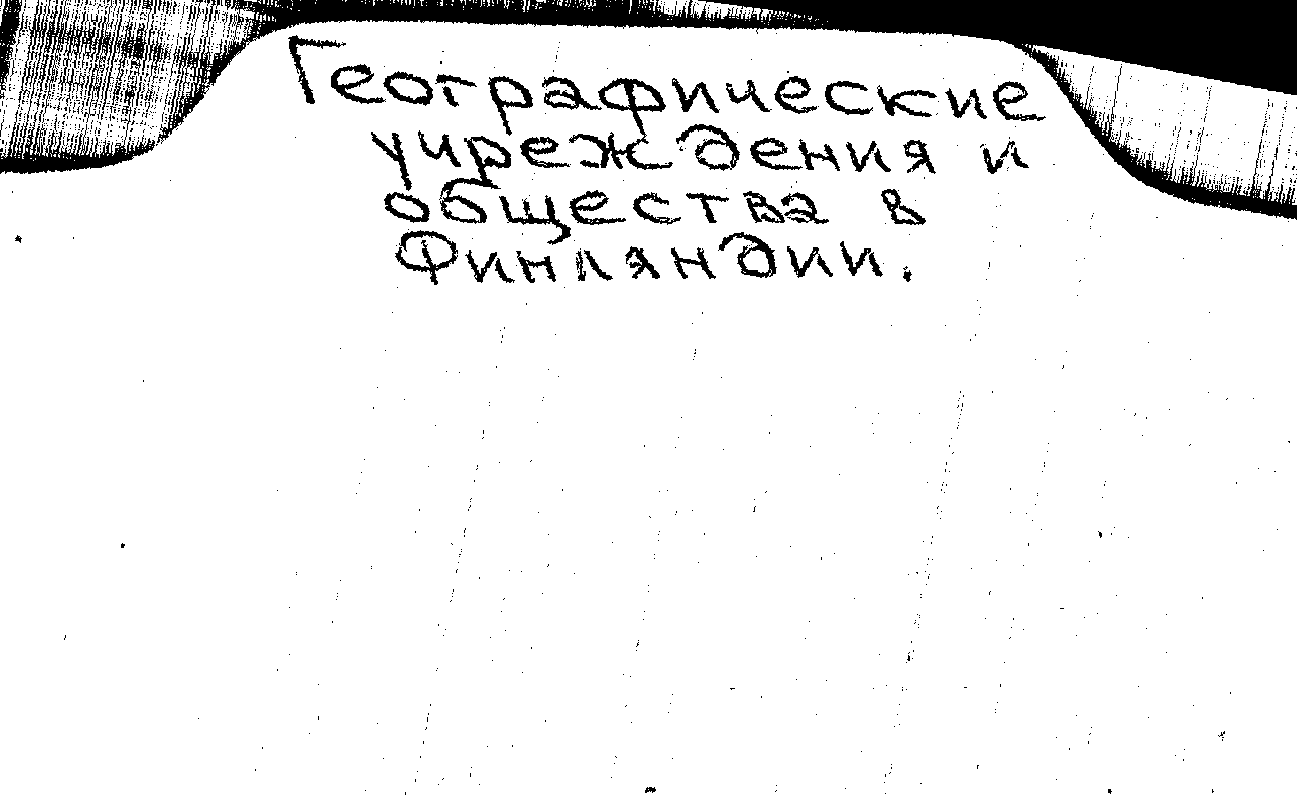 Географические
учреждения и
общества в
Финляндии.